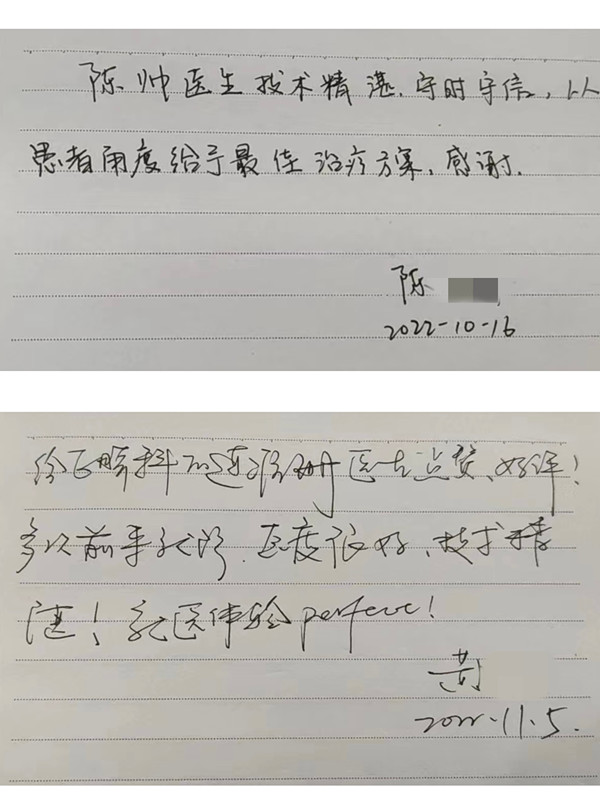 陈帅医生技术精湛、守时守信,以
患者角度给予最佳治疗方案,感谢.
陈
2022-10-16
给口腔科的医生点赞、好评!
多次前来就诊.态度很好、技术精
湛!就医体验perfect!
黄
2022.11.5.